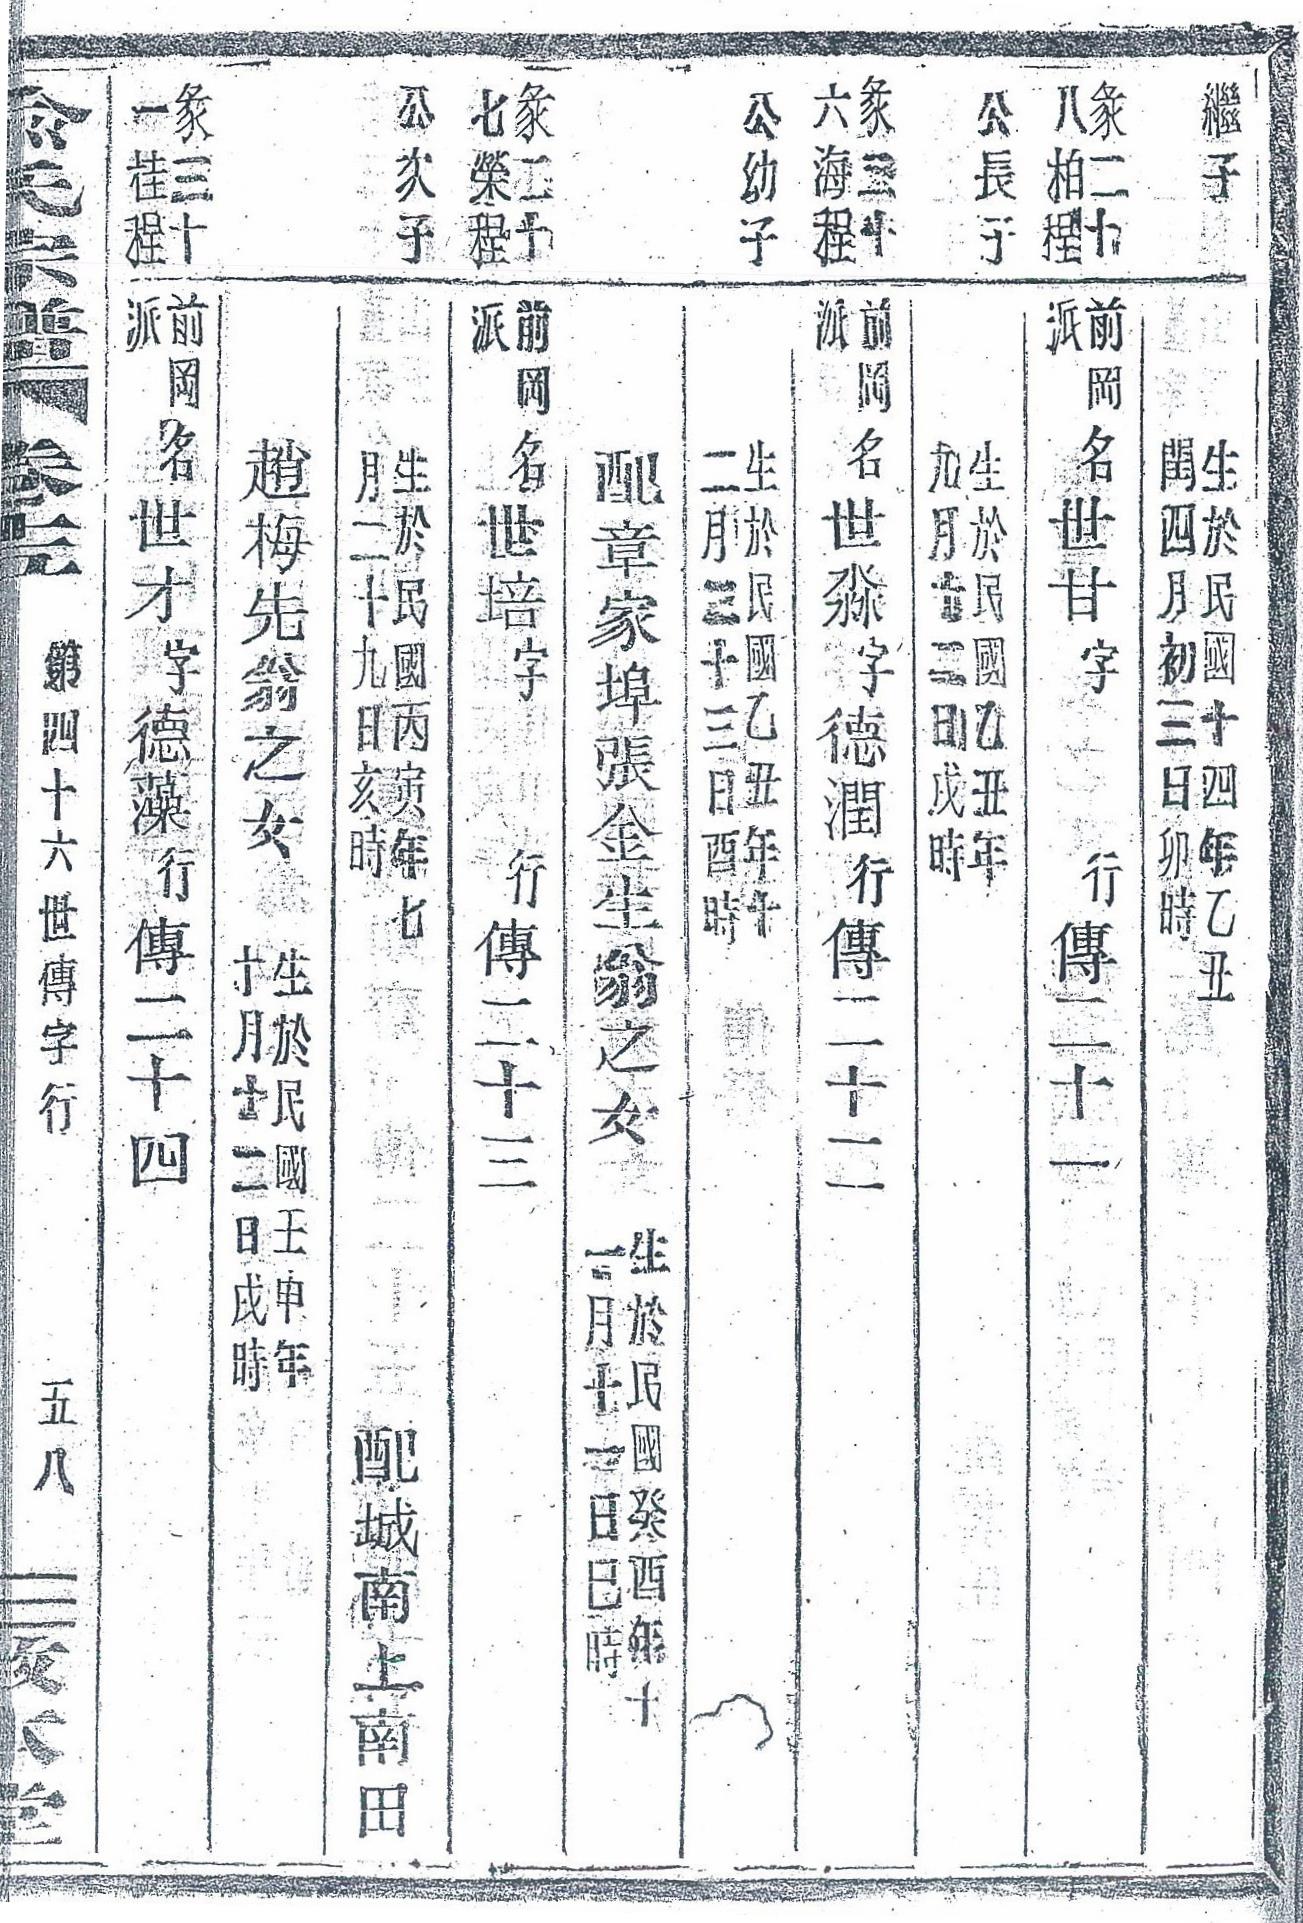 繼子
生於民國十四年乙丑
閏四月初三日卯時
彖二十
八柏程
前岡
派
名世甘字 行傳二十一
公長子
生於民國乙丑年
九月十二日戌時
彖三十
六海程
前岡
派
名世淼字德潤行傳二十二
公幼子
生於民國乙丑年十
二月三十三日酉時
配章家埠張金生翁之女
生於民國癸酉年十
一月十一日巳時
彖二十
七榮程
前岡
派
名世培字 行傳二十三
公次子
生於民國丙寅年七
月二十九日亥時
配城南上南田
趙梅先翁之女
生於民國壬申年
十月十二日戌時
彖三十
一桂程
前岡
派
名世才字德藻行傳二十四
氏宗譜 卷
第四十六世傳字行
五八
本堂